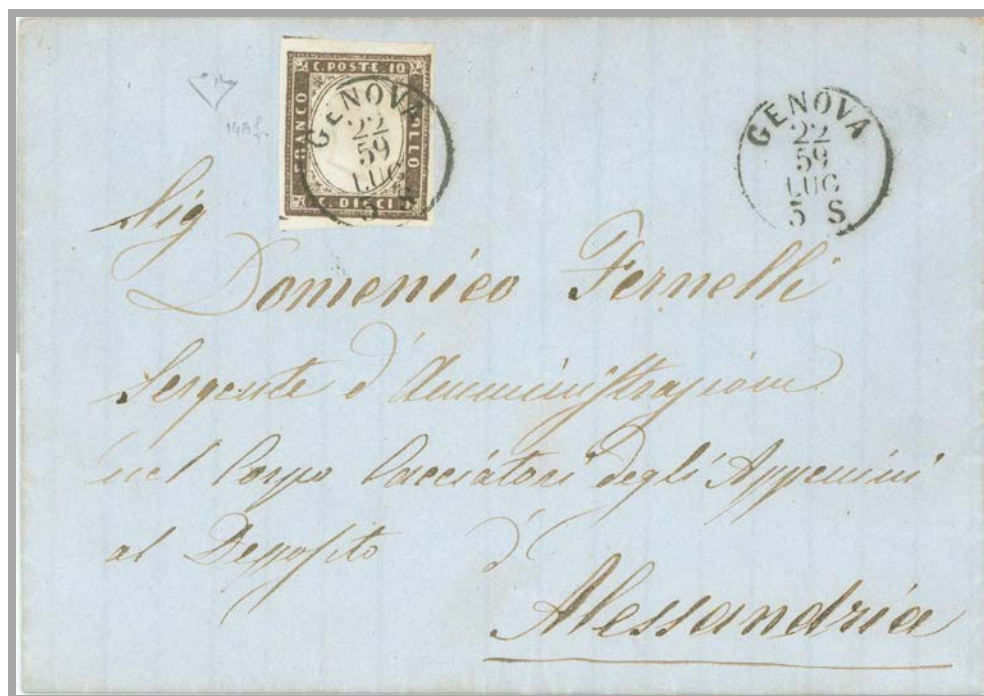 C. POSTE 10
FRANCO
BOLLO
C. DIECI
GENOVA
22
59
LUG
5 S
GENOVA
22
59
LUG
5 S
Sig
Domenico Fernelli
Sergente d'Amministrazione
nel Corpo Cacciatori degli Appenini
al Deposito d'
Alessandria